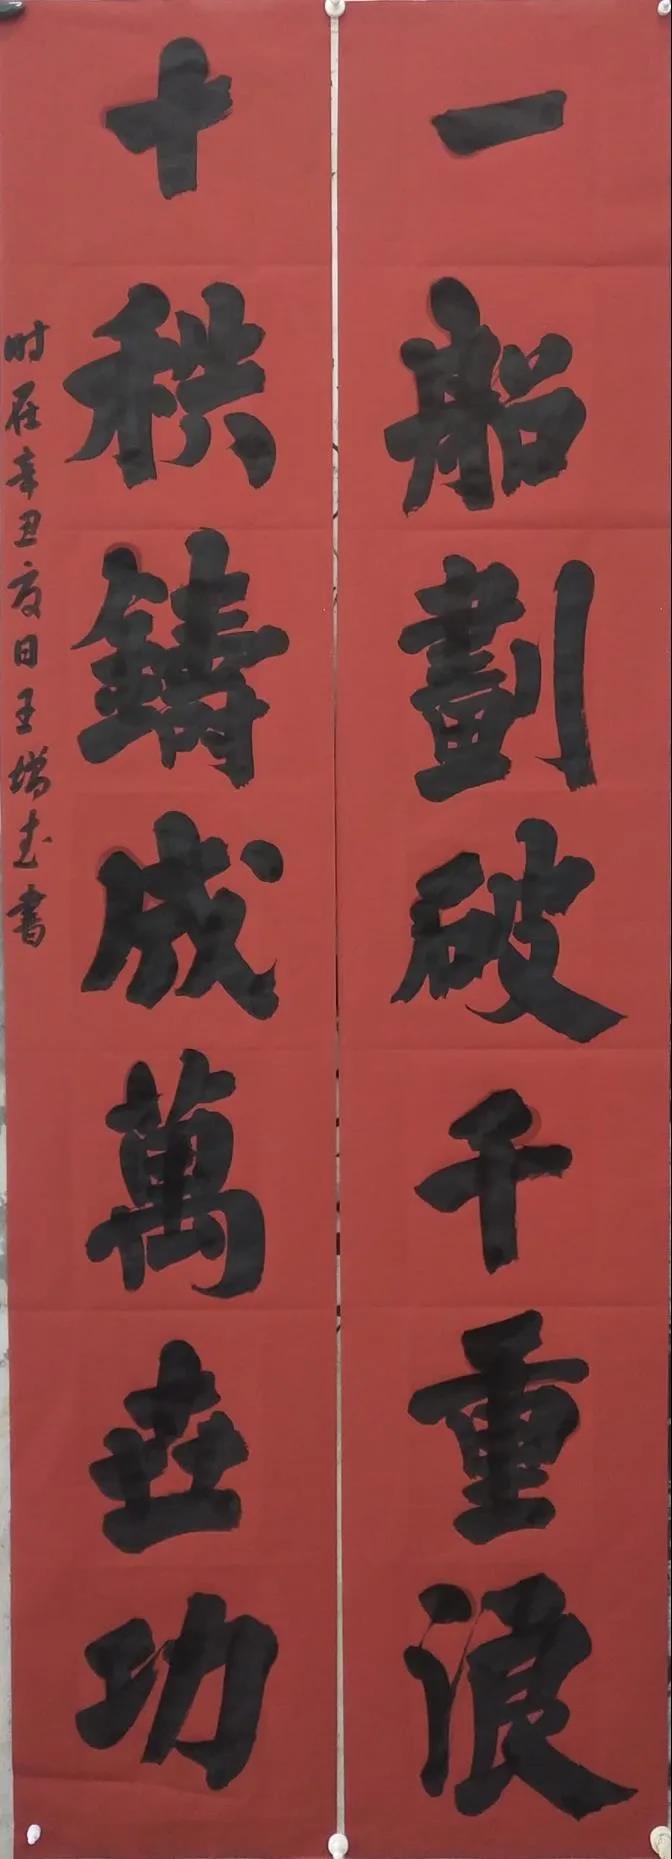 一船劃破千重浪
十秩鑄成萬世功
时在辛丑夏日王增武書